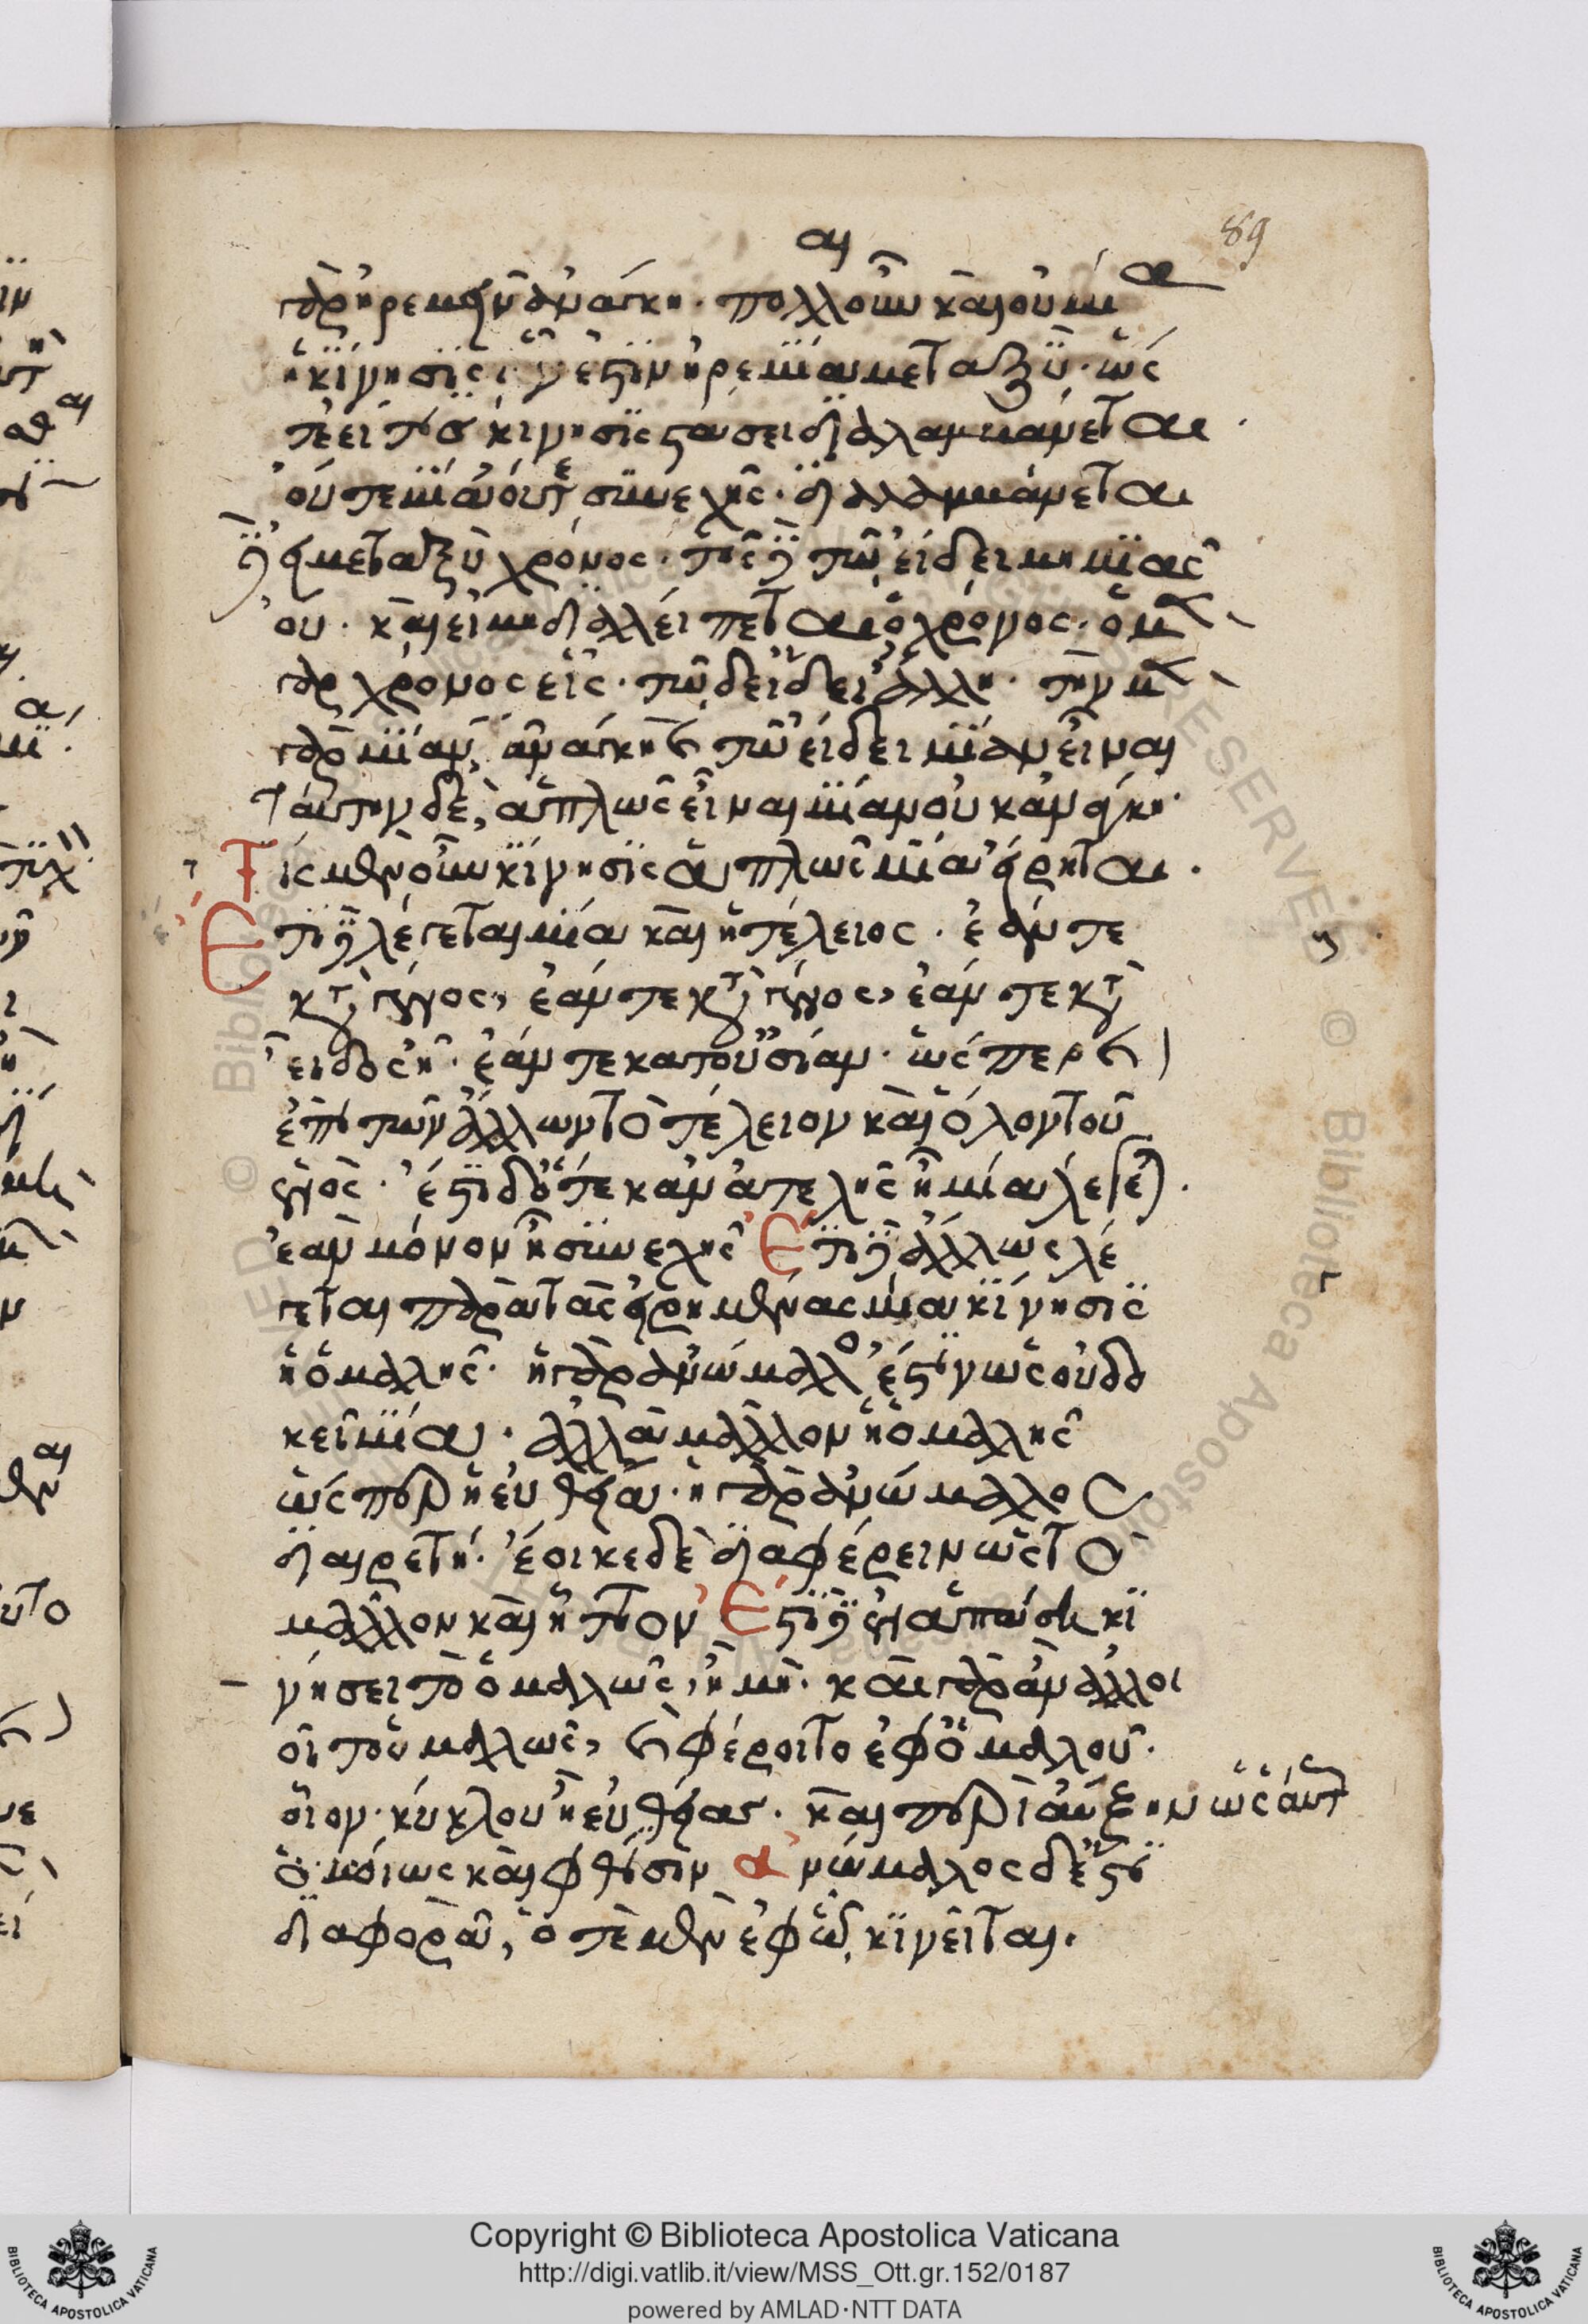 89
γὰρ ἠρεμεῖν ἀνάγκη. πολλαὶ οὖν καὶ οὐ μία
ἡ κίνησις, ὧν ἐστὶν ἠρεμία μεταξύ. ὥς
τε εἴ τις κίνησις στάσει διαλαμβάνεται
οὐ μία οὐδὲ συνεχής. διαλαμβάνεται
δὲ εἰ μεταξὺ χρόνος. τῆς δὲ τῷ εἴδει μὴ μιᾶς
οὔ. καὶ εἰ μὴ διαλείπεται ὁ χρόνος. ὁ μὲν
γὰρ χρόνος εἷς. τῷ δ εἴδει ἄλλη. τὴν μὲν
γὰρ μίαν, ἀνάγκη καὶ τῷ εἴδει μίαν εἶναι
ταύτην δὲ, ἁπλῶς εἶναι μίαν οὐκ ἀνάγκη.
Τίς μὲν οὖν κίνησις ἁπλῶς μία εἴρηται.
Ἔτι δὲ λέγεται μία καὶ ἡ τέλειος. ἐάν τε
κατὰ γένος, ἐάν τε κατὰ γένος, ἐάν τε κατὰ
εἶδος ᾖ. ἐάν τε κατ οὐσίαν. ὥσπερ καὶ
ἐπὶ τῶν ἄλλων τὸ τέλειον καὶ ὅλον τοῦ
ἑνός. ἔστι δ ὅτε κἂν ἀτελὴς ᾖ μία λέγεται.
ἐὰν μόνον ᾖ συνεχής Ἔτι δὲ ἄλλως λέ
γεται παρὰ τὰς εἰρημένας μία κίνησις
ἡ ὁμαλής. ἡ γὰρ ἀνώμαλος ἔστιν ὡς οὐ δο
κεῖ μία. ἀλλὰ μᾶλλον ἡ ὁμαλής
ὥσπερ ἡ εὐθεῖα. ἡ γὰρ ἀνώμαλος
διαιρετή. ἔοικε δὲ διαφέρειν ὡς τὸ
μᾶλλον καὶ ἧττον Ἔστι δὲ ἐν ἁπάσῃ κι
νήσει τὸ ὁμαλῶς, ἢ μή. καὶ γὰρ ἂν ἀλλοι
οῖτο ὁμαλῶς, καὶ φέροιτο ἐφ ὁμαλοῦ.
οἷον κύκλου ἢ εὐθείας. καὶ περὶ αὔξησιν ὡσαύτως
ὁμοίως καὶ φθίσιν ἀνώμαλος δ ἐστὶ
διαφορὰ, ὁτὲ μὲν ἐφ ᾧ κινεῖται.
Copyright © Biblioteca Apostolica Vaticana
http://digi.vatlib.it/view/MSS_Ott.gr.152/0187
powered by AMLAD·NTT DATA